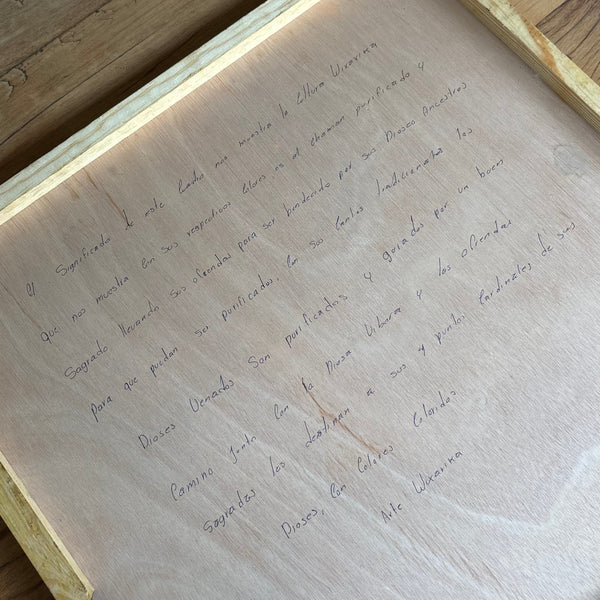 El Significado de este Cuadro nos muestra la Cultura Wixarika
que nos muestra Con sus respectivos Colores es el chaman purificado y
Sagrado llevando sus ofrendas para ser bindecido por sus Dioses Ancestros
para que puedan ser purificados, Con sus Cantos tradicionales los
Dioses Venados Son purificados y guiados por un buen
Camino junto Con la Diosa Vibora y los ofrendas
Sagradas los destinan a sus 4 puntos Cardinales de sus
Dioses, Con Colores Coloridos
Arte Wixarika